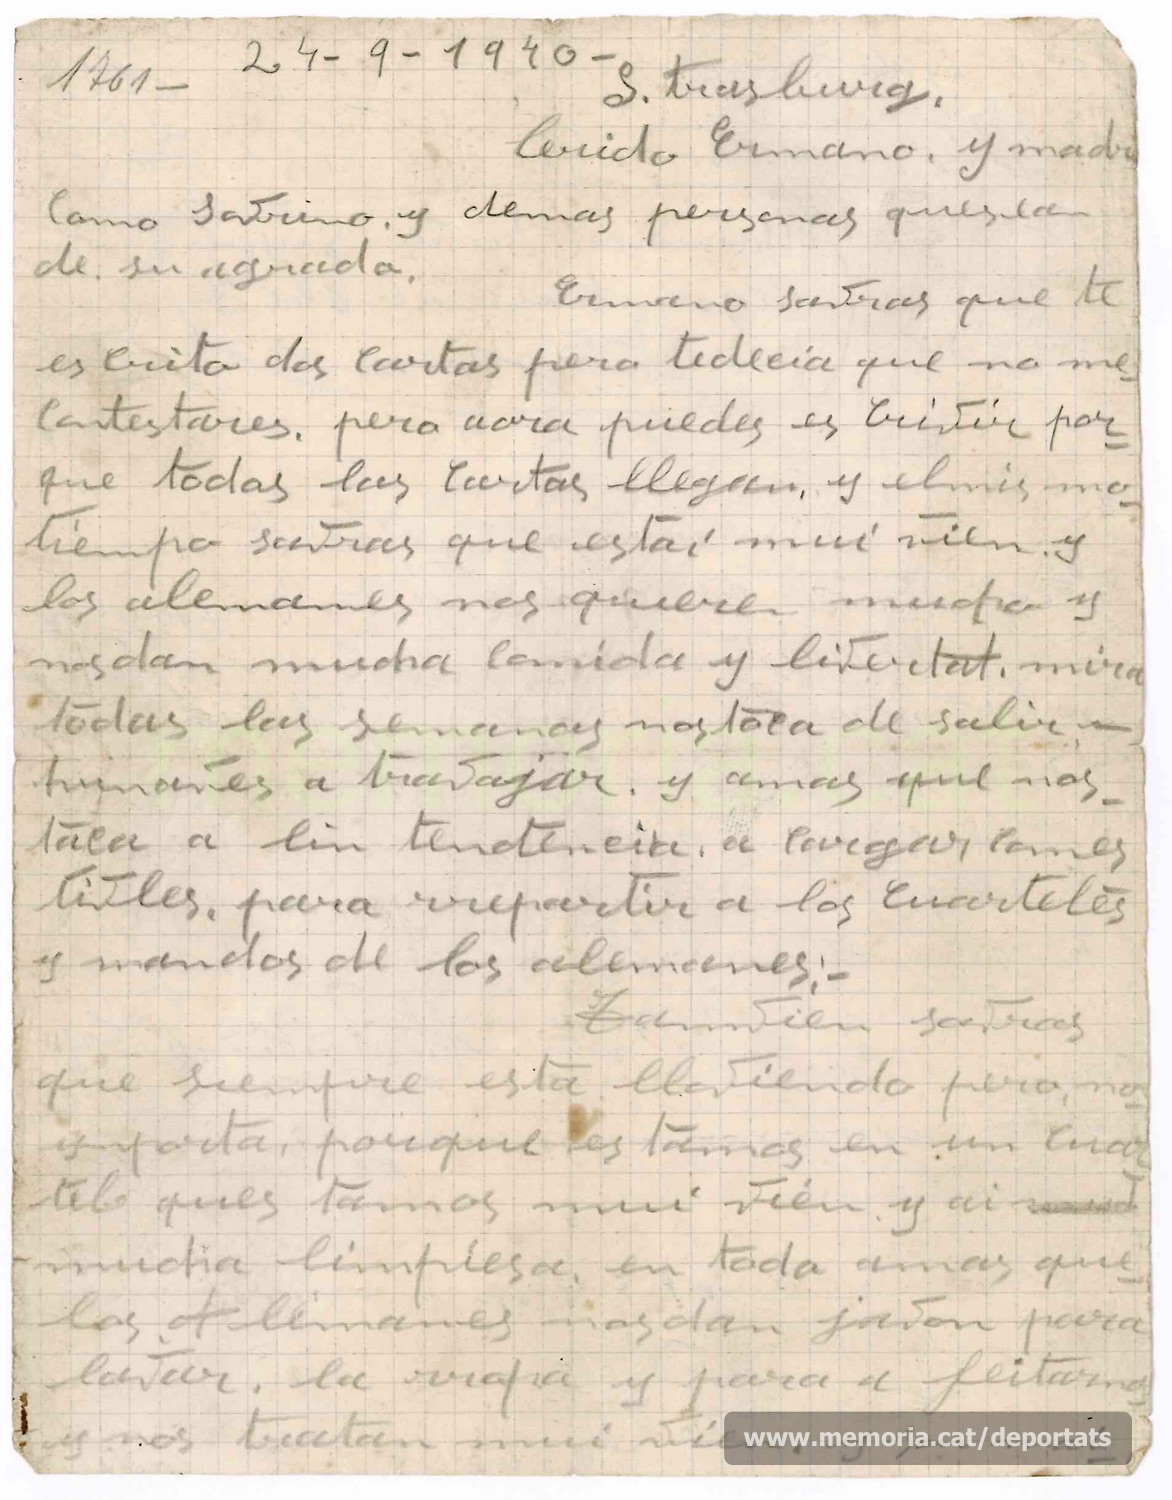 1761-
24-9-1940-
S. trasburg.
Cerido Ermano. y madre
Como Savrino. y demas personas quesean
de. su agrado.
Ermano savras que te
es Crito dos Cartas pero tedecia que no me-
Contestares. pero aora puedes es Crivir por-
que todas las Cartas llegan, y elmis mo-
tiempo savras que estai mui vien. y
los alemanes nos quieren mucho y
nosdan mucha Comida y livertat. mira
todas las semanas nostoca de salir
a travajar. y amas que nos-
toca a lin tendencia. a Cargar, Comes
tivles. para rrepartir a los Cuarteles
y mandos de los alemanes;-
Tamvien savras
que siempre esta lloviendo pero, no-
ymporta, porque es tamos en un Cuar
tel ques tamos mui vien y ai
mucha limpiesa. en todo amas que-
los Allemanes nosdan javon para
lavar. la rropa y para a feitarnos
y nos tratan mui vien
www.memoria.cat/deportats